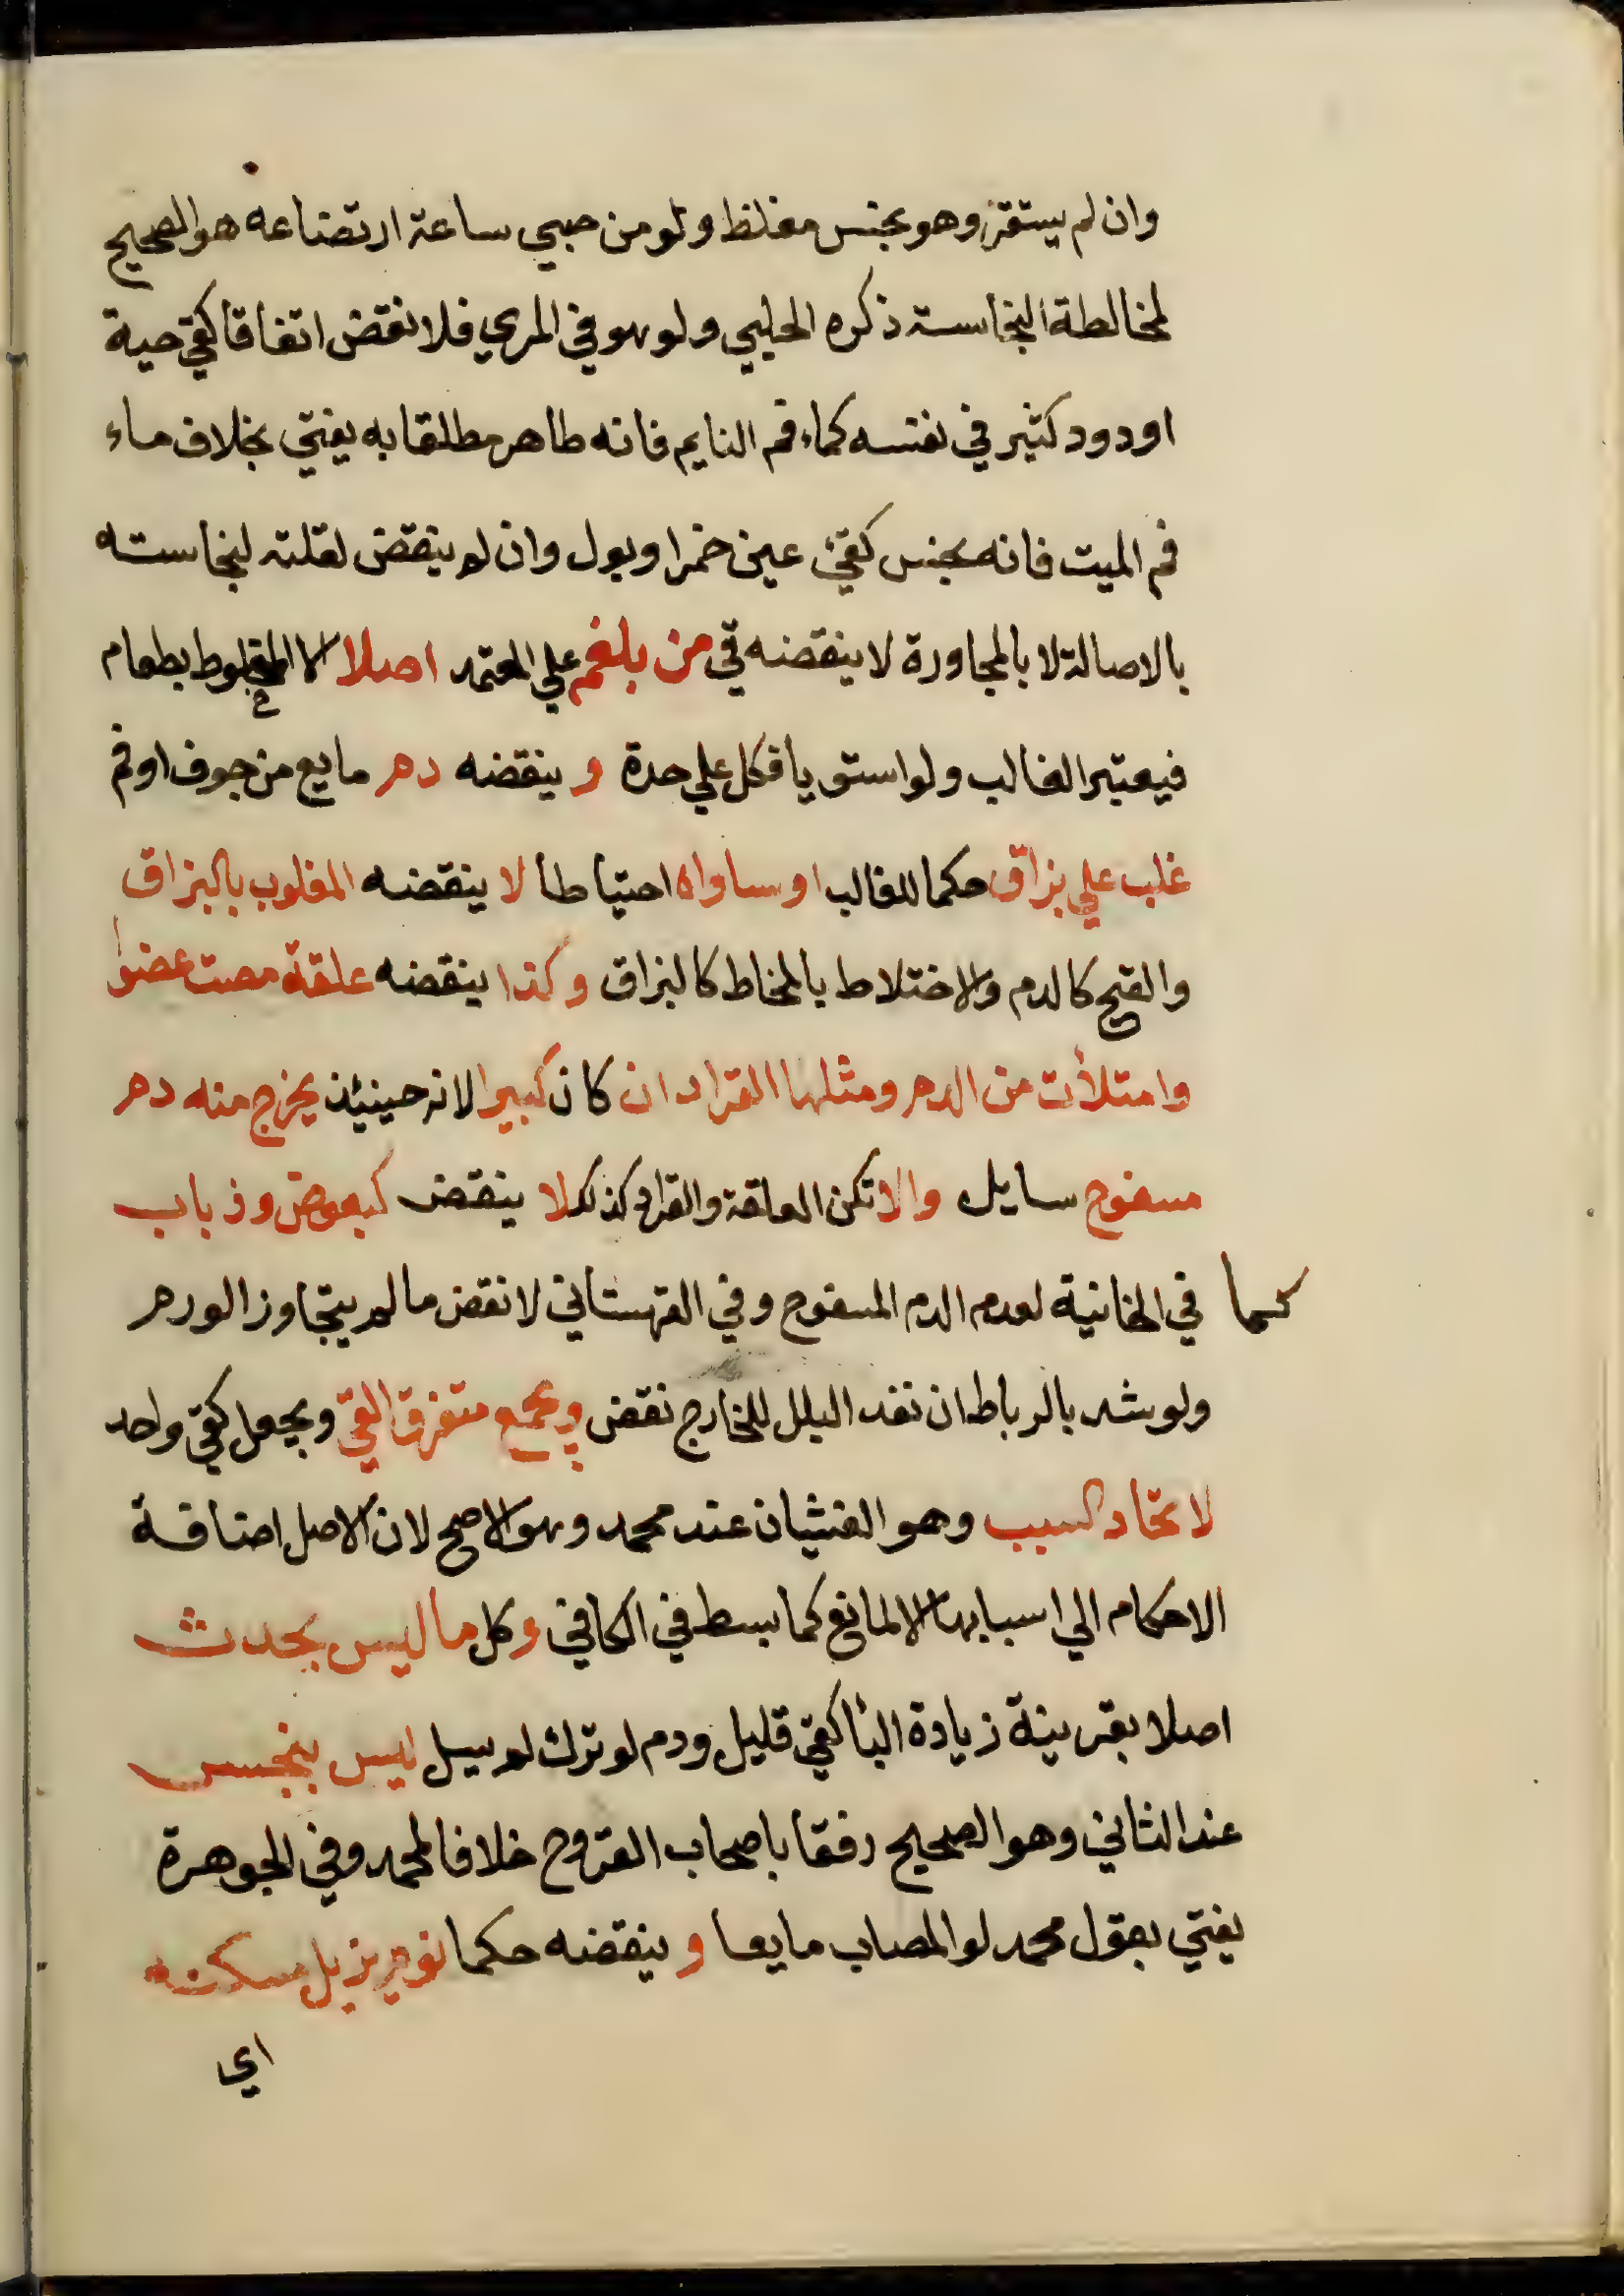 وان لم يستقر وهو نجس مغلظ ولو من صبي ساعة ارتضاعه هو الصحيح
لمخالطة النجاسة ذكره الحلبي ولو هو في المري فلا نقض اتفاقا كقي حية
او دود كثير في نفسه كماء فم النايم فانه طاهر مطلقا به يفتي بخلاف ماء
فم الميت فانه نجس كقئ عين خمر او بول وان لم ينقض لقلته لنجاسته
بالاصالة لا بالمجاورة لا ينقضه قي من بلغم علي المعتمد اصلا الا المخلوط بطعام
فيعتبر الغالب ولو استويا فكل علي حدة و ينقضه دم مايع من جوف او فم
غلب علي بزاق حكما للغالب او ساواه احتياطا لا ينقضه المغلوب بالبزاق
والقيح كالدم والاختلاط بالمخاط كالبزاق وكذا ينقضه علقة مصت عضوا
وامتلأت من الدم ومثلها القراد ان كان كبيرا لانه حينئذ يخرج منه دم
مسفوح سايل والا تكن العلقة والقراد كذلك لا ينقض كبعوض وذباب
كما في الخانية لعدم الدم المسفوح وفي القهستاني لا نقض ما لم يتجاوز الورم
ولو شد بالرباط ان نفد البلل للخارج نقض ويجمع متفرق القي ويجعل كقي واحد
لاتحاد السبب وهو الغثيان عند محمد وهو الاصح لان الاصل اضافة
الاحكام الي اسبابها الا لمانع كما بسط في الكافي وكل ما ليس بحدث
اصلا بقرينة زيادة البأ كقي قليل ودم لو ترك لم يسل ليس بنجس
عند الثاني وهو الصحيح رفقا باصحاب القروح خلافا لمحمد وفي الجوهرة
يفتي بقول محمد لو المصاب مايعا و ينقضه حكما نوم يزيل مسكته
اي